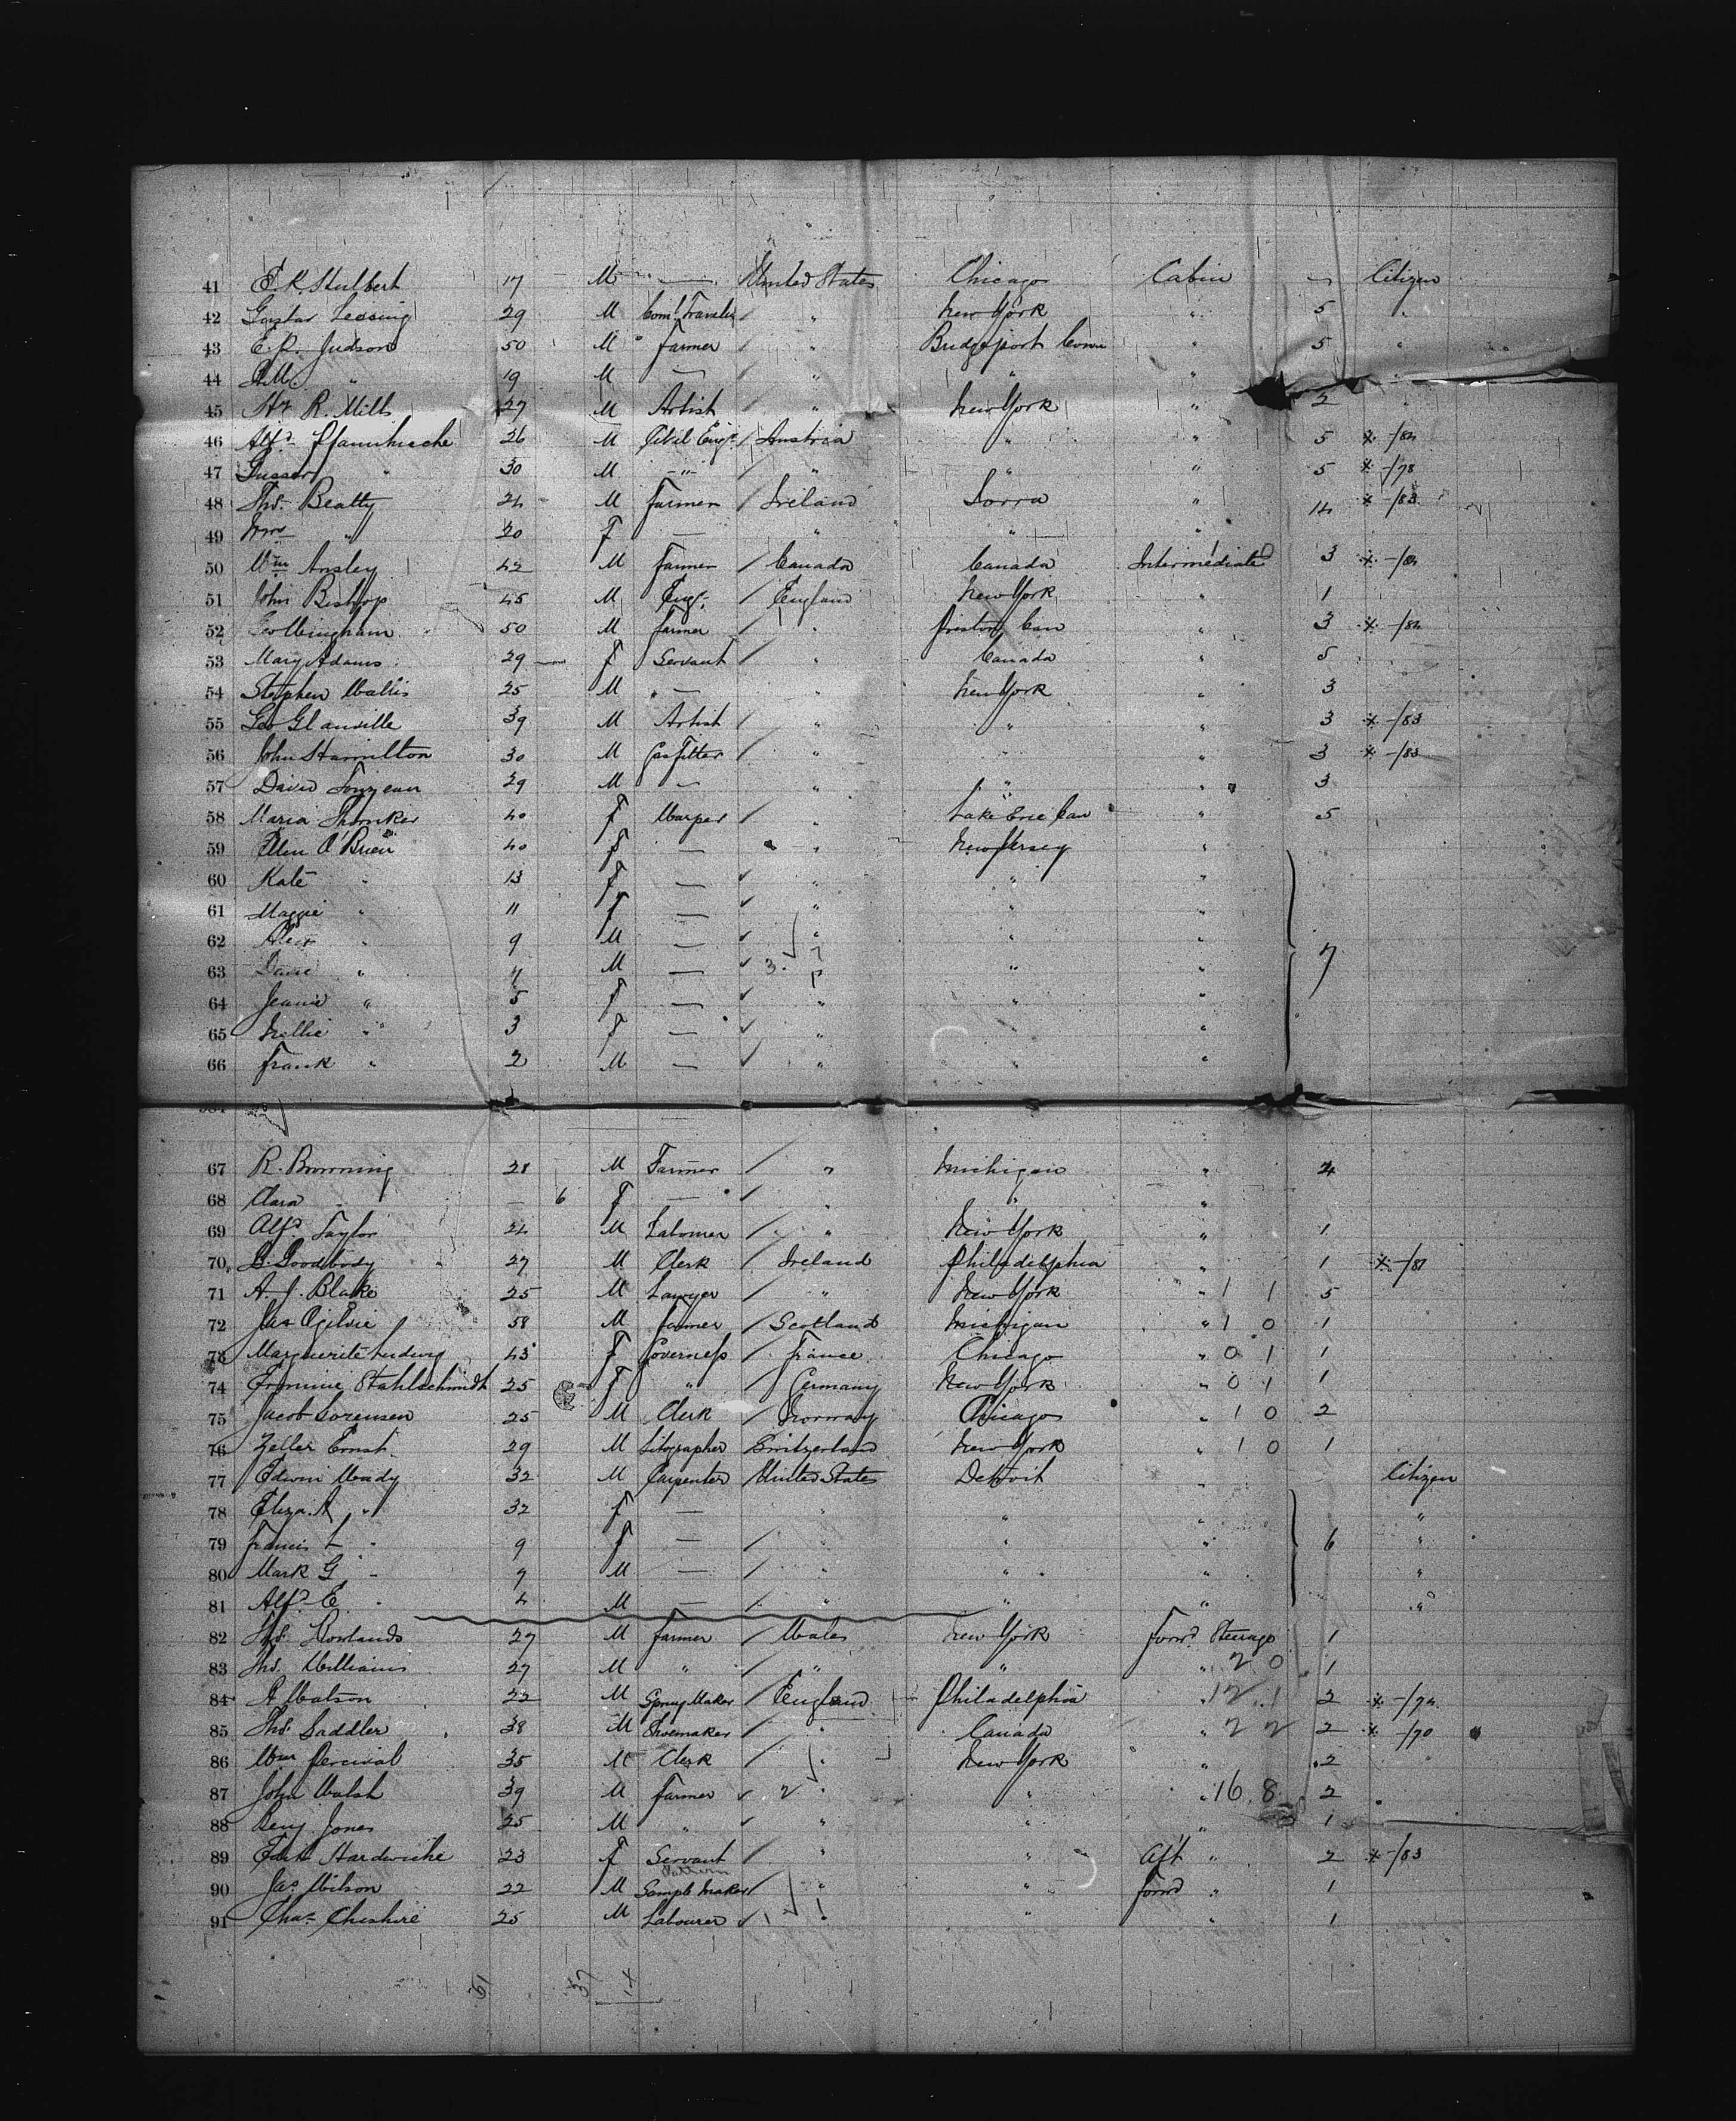 41 E. K. Hulbert 17 M — United States Chicago Cabin — Citizen
42 Gustav Lessing 29 M Coml. Traveler / " New York " 5 "
43 E. R. Judson 50 M Farmer / " Bridgeport Conn " 5 "
44 " 19 M — / " " " "
45 Hy R. Mills 27 M Artist / " New York " 2 "
46 Alfd. 26 M Civil Engr. / Austria " " 5 x -/84
47 " 30 M -"- / " " " 5 x -/78
48 Thos. Beatty 24 M Farmer / Ireland " 14 x -/83
49 Mrs " 20 F — " " "
50 Wm Ansley 42 M Farmer / Canada Canada Intermediate 3 x -/84
51 John Bishop 45 M Eng. / England New York " 1
52 50 M Farmer / " Can " 3 x -/84
53 Mary Adams 29 F Servant / " Canada " 5
54 Stephen Wallis 25 M " — " New York " 3
55 Geo Glanville 39 M Artist / " " " 3 x -/83
56 John Hamilton 30 M Gas Fitter / " " " 3 x -/83
57 David 29 M — " " " 3
58 Maria 40 F / " Lake Erie Can " 5
59 Ellen O'Brien 40 F — " New Jersey "
60 Kate " 13 F — ✓ " " "
61 Maggie " 11 F — ✓ " " "
62 Alex " 9 M — ✓ " " "
63 " 7 M — ✓ 3 " " 7
64 Jeanie " 5 F — ✓ " " "
65 Nellie " 3 F — ✓ " "
66 Frank " 2 M — ✓ " " "
67 R. Browning 28 M Farmer / " Michigan " 2
68 Clara " — 6 F — ✓ " " "
69 Alfd Taylor 24 M Labourer / " New York " 1
70 B. Goodbody 27 M Clerk / Ireland Philadelphia " 1 x -/81
71 A. J. Blake 25 M Lawyer / " New York " 1 1 5
72 Jas Ogilvie 58 M Farmer / Scotland Michigan " 1 0 1
73 Marguerite Ludwig 43 F Governess / France Chicago " 0 1 1
74 Stahlschmidt 25 F " / Germany New York " 0 1 1
75 Jacob Sorensen 25 M Clerk / Norway Chicago " 1 0 2
76 Zeller Ernst 29 M Litographer Switzerland New York " 1 0 1
77 Edwin Mady 32 M Carpenter / United States Detroit " Citizen
78 Eliza. A " 32 F — " " " "
79 Francis L " 9 F — / " " " 6 "
80 Mark G " 7 M — / " " " "
81 Alfd. E " 4 M — / " " " "
82 Thos. Rowlands 27 M Farmer / Wales New York Forwd Steerage 1
83 Thos. Williams 27 M " / " " " 2 0 1
84 A Watson 22 M Spring Maker / England Philadelphia " 12 1 2 x -/74
85 Thos. Saddler 38 M Shoemaker / " Canada " 2 2 2 x -/70
86 Wm Percival 35 M Clerk / " New York " 2
87 John Walsh 39 M Farmer ✓ 2 " " " 16 8 2
88 Benj. Jones 25 M " / " " " 1
89 Hardwicke 23 F Servant / " " Aft " 2 x -/83
Pattern
90 Jas Wilson 22 M Sample Maker / " " Forwd " 1
91 Chas Cheshire 25 M Labourer ✓ 1 " " " 1